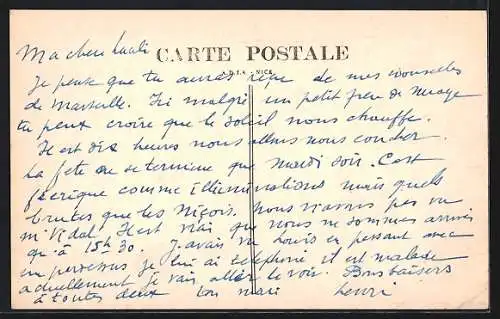 Ma chère
CARTE POSTALE
Je pense que tu auras reçu de mes nouvelles
de Marseille. Ici malgré un petit peu de nuage
tu peux croire que le soleil nous chauffe.
Il est des heures nous allons nous coucher.
La fête ne se termine que mardi soir. C'est
féerique comme illuminations mais quels
brutes que les Niçois. Nous n'avons pas vu
Mr Vidal. Il est vrai que nous ne sommes arrivés
qu'à 15h30. J'avais vu Louis en passant avec
je lui ai téléphoné il est malade
actuellement je vais aller le voir. Bons baisers
à toutes deux ton mari Henri